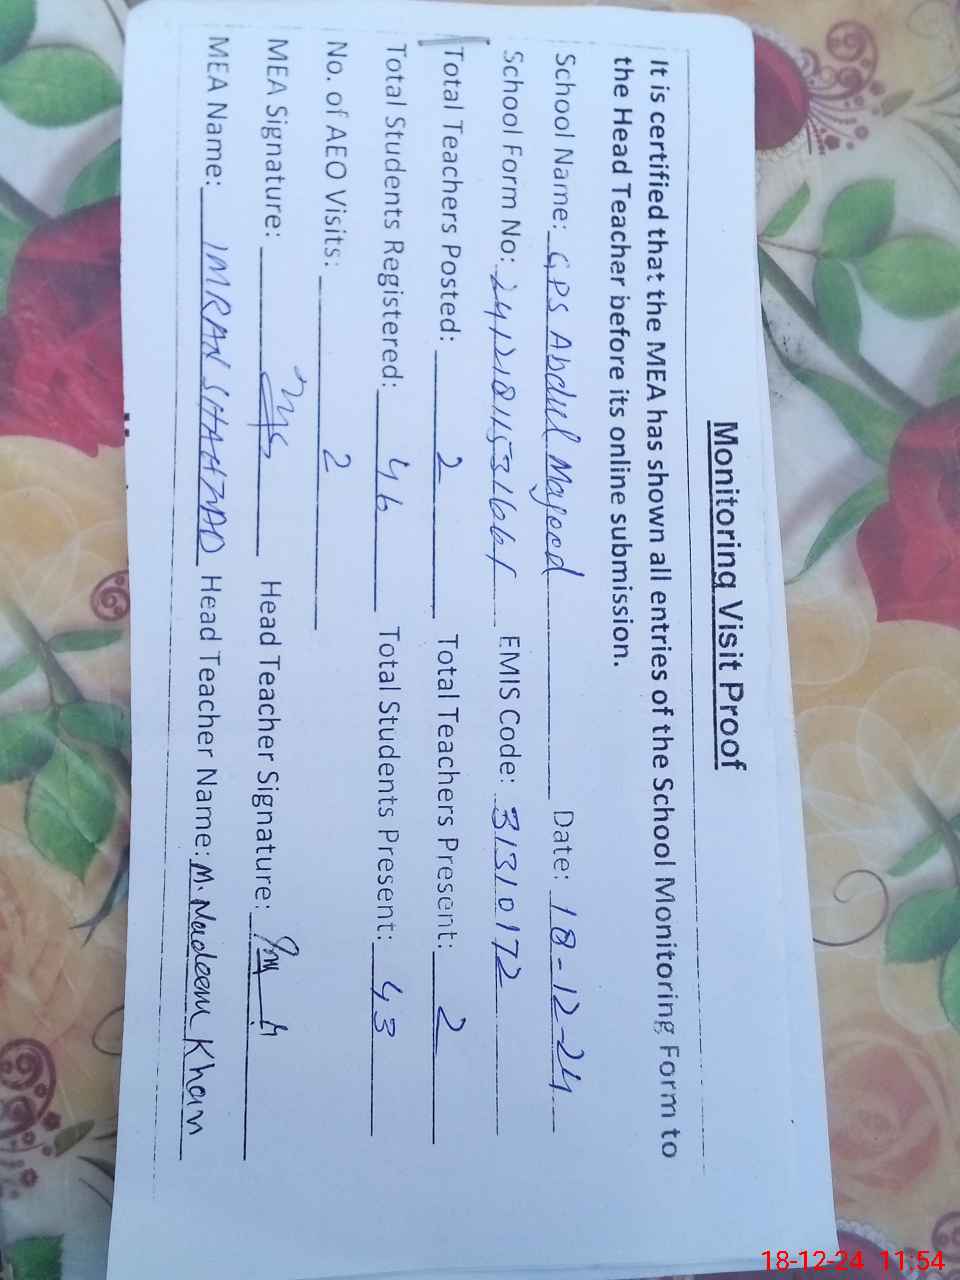 Monitoring Visit Proof
It is certified that the MEA has shown all entries of the School Monitoring Form to
the Head Teacher before its online submission.
School Name: GPS Abdul Majeed Date: 18-12-24
School Form No: EMIS Code: 31310172
Total Teachers Posted: 2 Total Teachers Present: 2
Total Students Registered: 46 Total Students Present: 43
No. of AEO Visits: 2
MEA Signature: Head Teacher Signature:
MEA Name: IMRAN SHAHZAD Head Teacher Name: M. Nadeem Khan
18-12-24 11:54